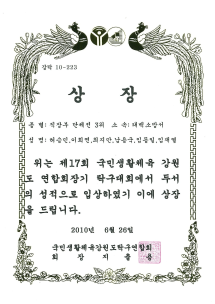 강탁 10-223
상 장
종 별: 직장부 단체전 3위 소 속: 태백소방서
성 명: 허승민, 이희면, 최지만, 남용국, 임동일, 임재열
위는 제17회 국민생활체육 강원
도 연합회장기 탁구대회에서 두서
의 성적으로 입상하였기 이에 상장
을 드립니다.
2010년 6월 26일
국민생활체육강원도탁구연합회
회 장 지